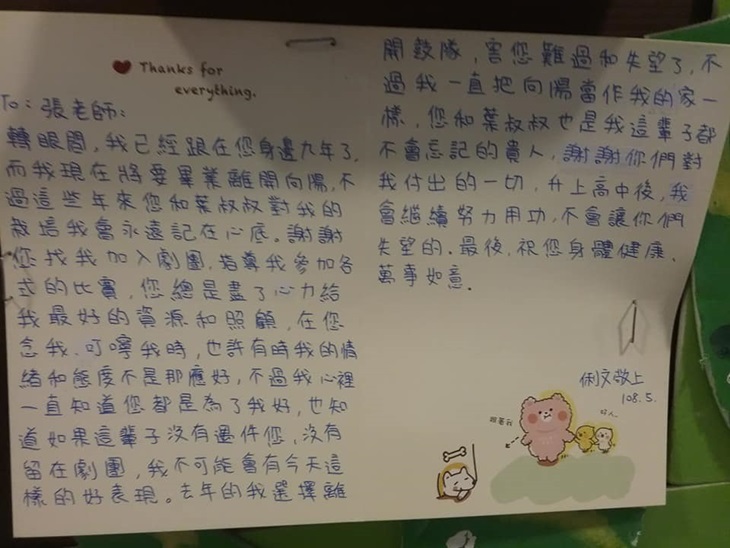 Thanks for
everything.
To：張老師：
轉眼間，我已經跟在您身邊九年了，
而我現在將要畢業離開向陽，不
過這些年來您和葉叔叔對我的
栽培我會永遠記在心底。謝謝
您找我加入劇團，指導我參加各
式的比賽，您總是盡了心力給
我最好的資源和照顧，在您
念我、叮嚀我時，也許有時我的情
緒和態度不是那麼好，不過我心裡
一直知道您都是為了我好，也知
道如果這輩子沒有遇件您，沒有
留在劇團，我不可能會有今天這
樣的好表現。去年的我選擇離
開鼓隊，害您難過和失望了，不
過我一直把向陽當作我的家一
樣，您和葉叔叔也是我這輩子都
不會忘記的貴人，謝謝你們對
我付出的一切，升上高中後，我
會繼續努力用功，不會讓你們
失望的。最後，祝您身體健康、
萬事如意．
俐文敬上
108.5.
跟著我